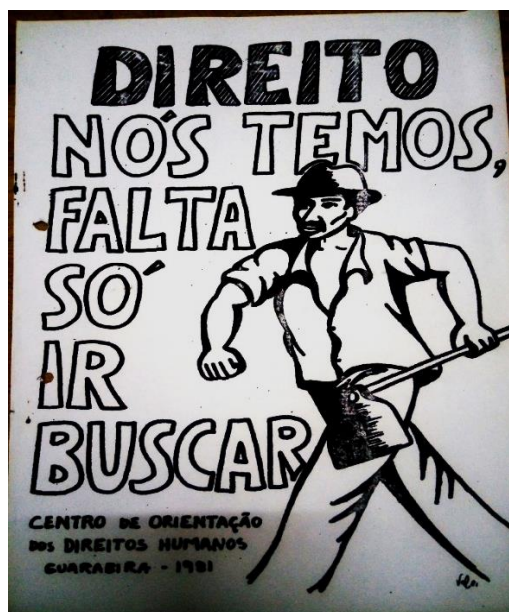 DIREITO
NÓS TEMOS,
FALTA
SÓ
IR
BUSCAR
CENTRO DE ORIENTAÇÃO
DOS DIREITOS HUMANOS
GUARABIRA - 1981